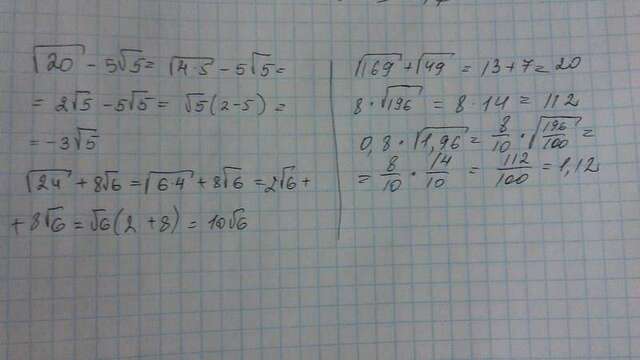 √20 - 5√5 = √4·5 - 5√5 =
= 2√5 - 5√5 = √5(2-5) =
= -3√5
√24 + 8√6 = √6·4 + 8√6 = 2√6 +
+ 8√6 = √6(2 + 8) = 10√6
√169 + √49 = 13 + 7 = 20
8 · √196 = 8 · 14 = 112
0,8 · √1,96 = 8/10 · √196/100 =
= 8/10 · 14/10 = 112/100 = 1,12